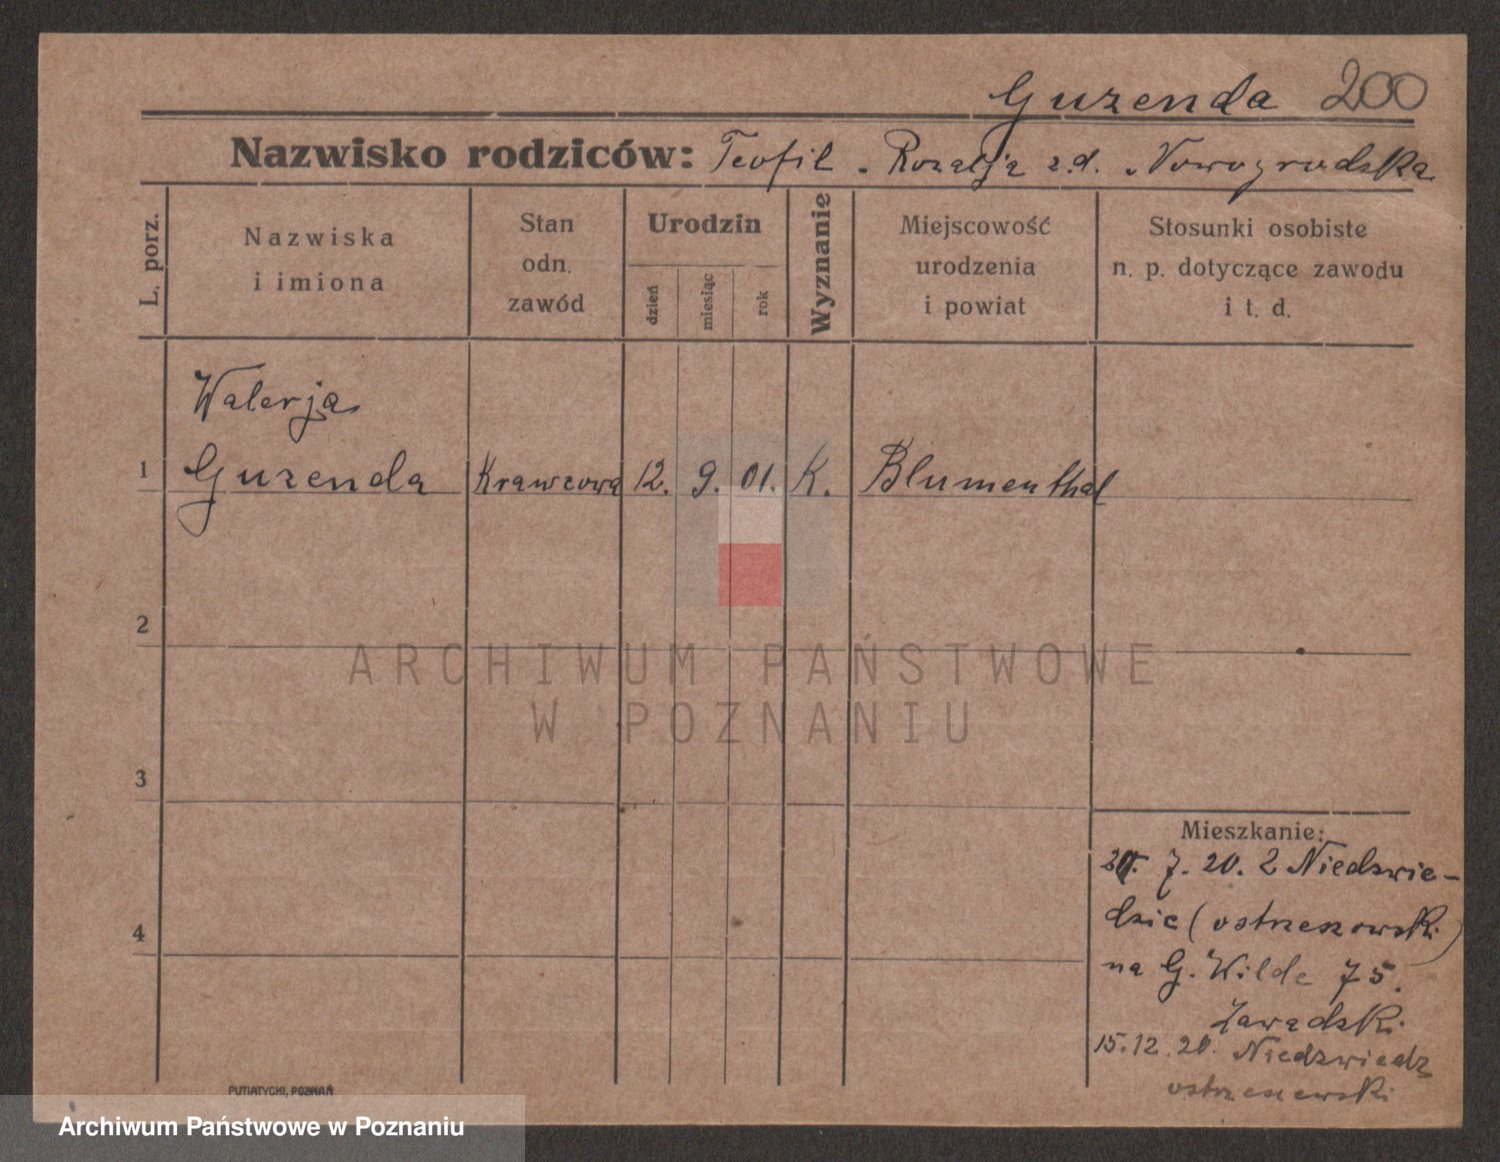 Guzenda 200
Nazwisko rodziców: Teofil - Rozalja z.d. Nowogrodska
L. porz.
Nazwiska
i imiona
Stan
odn.
zawód
Urodzin
dzień
miesiąc
rok
Wyznanie
Miejscowość
urodzenia
i powiat
Stosunki osobiste
n. p. dotyczące zawodu
i t. d.
Walerja
1 Guzenda Krawcowa 12. 9. 01. K. Blumenthal
2
ARCHIWUM PAŃSTWOWE
W POZNANIU
3
Mieszkanie:
7. 20. 2 Niedzwie-
dzic (ostrzeszowski)
4
na G. Wilde 75.
Zawadzki
15.12.20. Niedzwiedz
ostrzeszewski
PUTIATYCKI, POZNAŃ
Archiwum Państwowe w Poznaniu